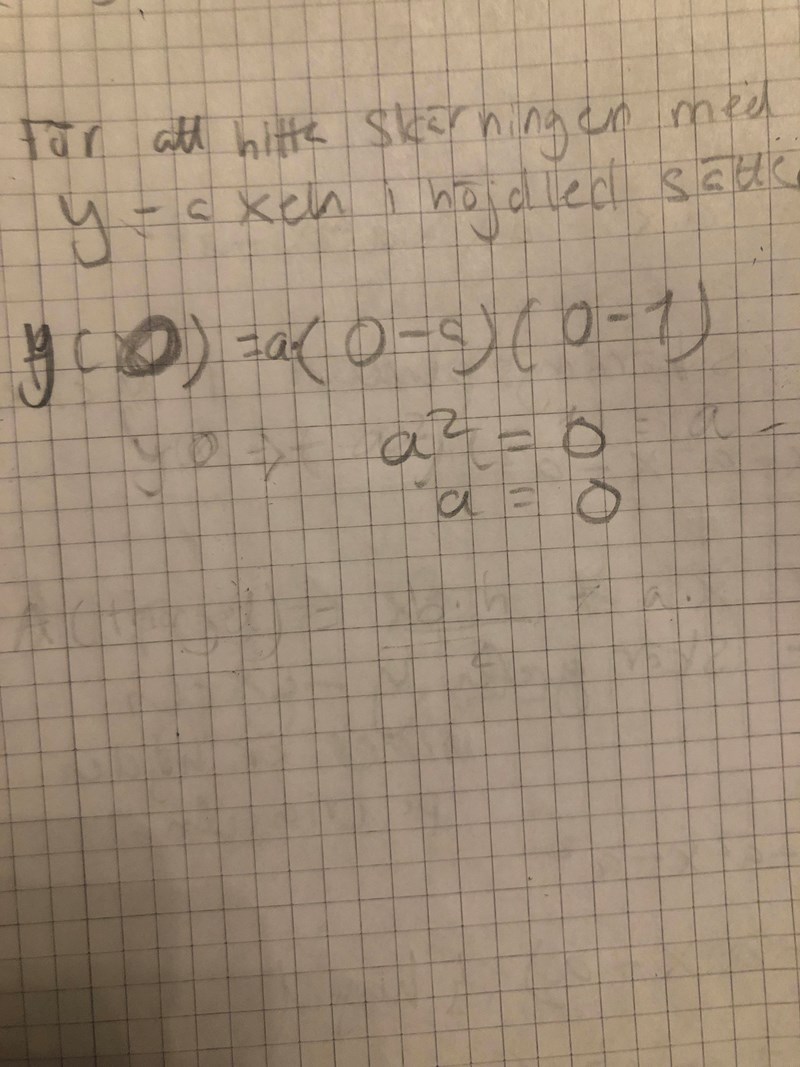 För att hitta skärningen med
y-axeln i höjdled sätts
y(0) = a·(0-a)(0-1)
a² = 0
a = 0